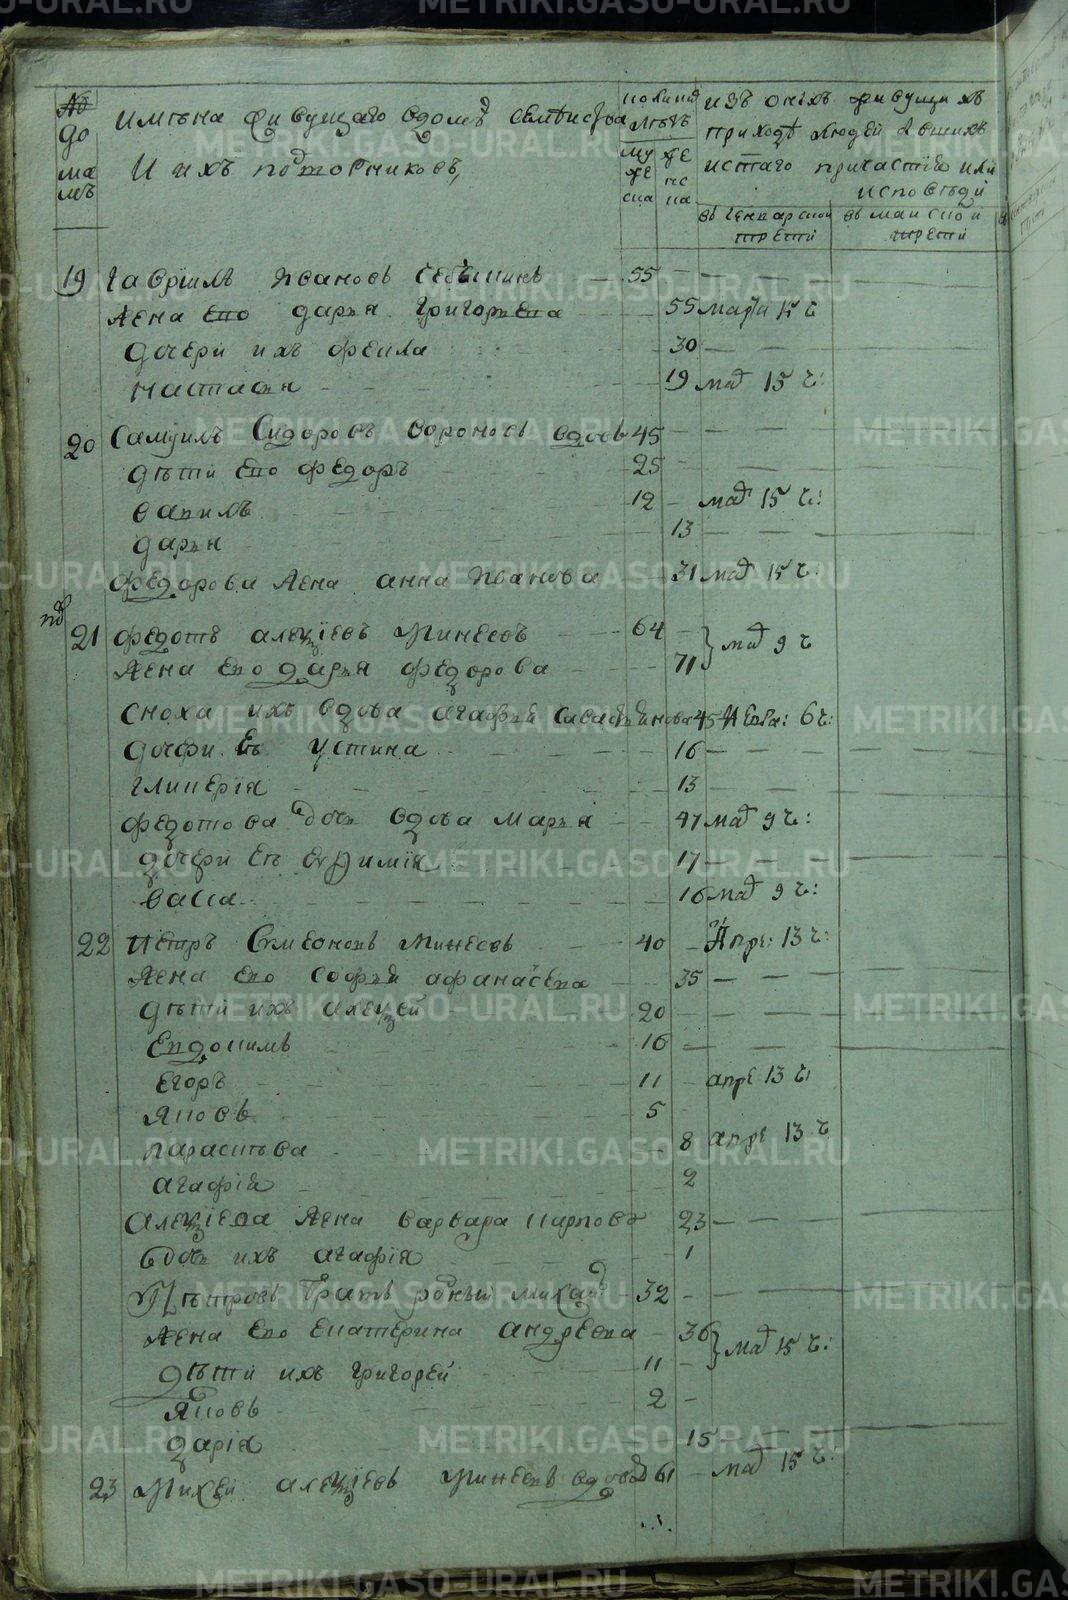 № домамъ
имѣна живущаго вдомѣ
И ихъ потомниковъ,
коликиѣ лѣтъ
мужеска
женска
изъ онихъ живущихъ
приходѣ людей бвшихъ
истаго причастія или
исповѣди
въ генварской трети
въ маиской трети
19 гаврiилъ Ивановъ 55
Жена Ево дарья Григорьева 55 марта 15 ч
дочери ихъ феκла 30
настасья 19 маѣ 15 ч:
20 Самуилъ Сидоровъ вороновъ вдовъ 45
дѣти Ево Федоръ 25
вавилъ 12 маѣ 15 ч:
дарья 13
федорова Жена анна Иванова 31 маѣ 15 ч:
21 федотъ алексiевъ Минеевъ 64
Жена Ево дарья федорова 71 маѣ 9 ч
сноха ихъ вдова агафия савастьянова 45 6 ч:
дочери Еѣ устина 16
глинерiя 13
федотова дочь вдова марья 47 маѣ 9 ч:
дочери Еѣ евфимiя 17
васса 16 маѣ 9 ч:
22 Петръ Симеоновъ минеевъ 40 Апре: 13 ч:
Жена Ево софья афанасева 35
дѣти ихъ алексей 20
Евдокимъ 16
Егоръ 11 апре 13 ч
Яковъ 5
параскева 8 апре 13 ч
агафiя 2
алексiева Жена варвара карпова 23
дочь ихъ агафiя 1
Петровъ братъ родный михайла 32
Жена Ево Екатерина андреева 36 маѣ 15 ч:
дѣти ихъ григорей 11
Яковъ 2
дарiя 15
23 Михей алексiевъ Минеевъ вдовъ 61 маѣ 15 ч:
METRIKI.GASO-URAL.RU